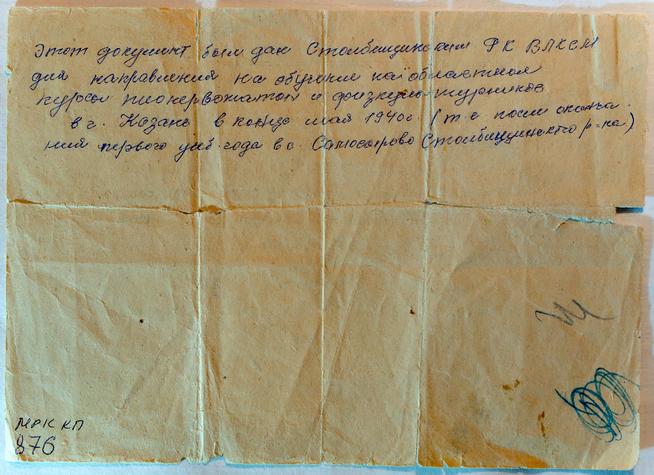 Этот документ был дан Столбищинским РК ВЛКСМ
для направления на обучение на областные
курсы пионервожатых и физкультурников
в г. Казань в конце мая 1940 г. (т.е после оконча-
ния первого уч. года в с. Самосырово Столбищинского р-на)
МРК КП
876